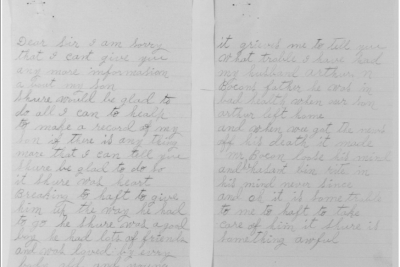 Dear Sir I am sorry
that I cant give you
any more information
about my son
I shure would be glad to
do all I can to healp
to make a record of my
son if there is any thing
more that I can tell you
I shure be glad to do so
it shure was heart
Breaking to haft to give
him up the way he had
to go he shure was a good
boy he had lots of friends
and was loved by every
body old and young
it grieves me to tell you
What trouble I have had
my husband arthur N
father he was in
bad health when our son
arthur left home
and when we got the news
off his death it made
mr loose his mind
and he hasent bin rite in
his mind never since
and oh it is home trouble
to me to haft to take
care of him it shure is
something awful